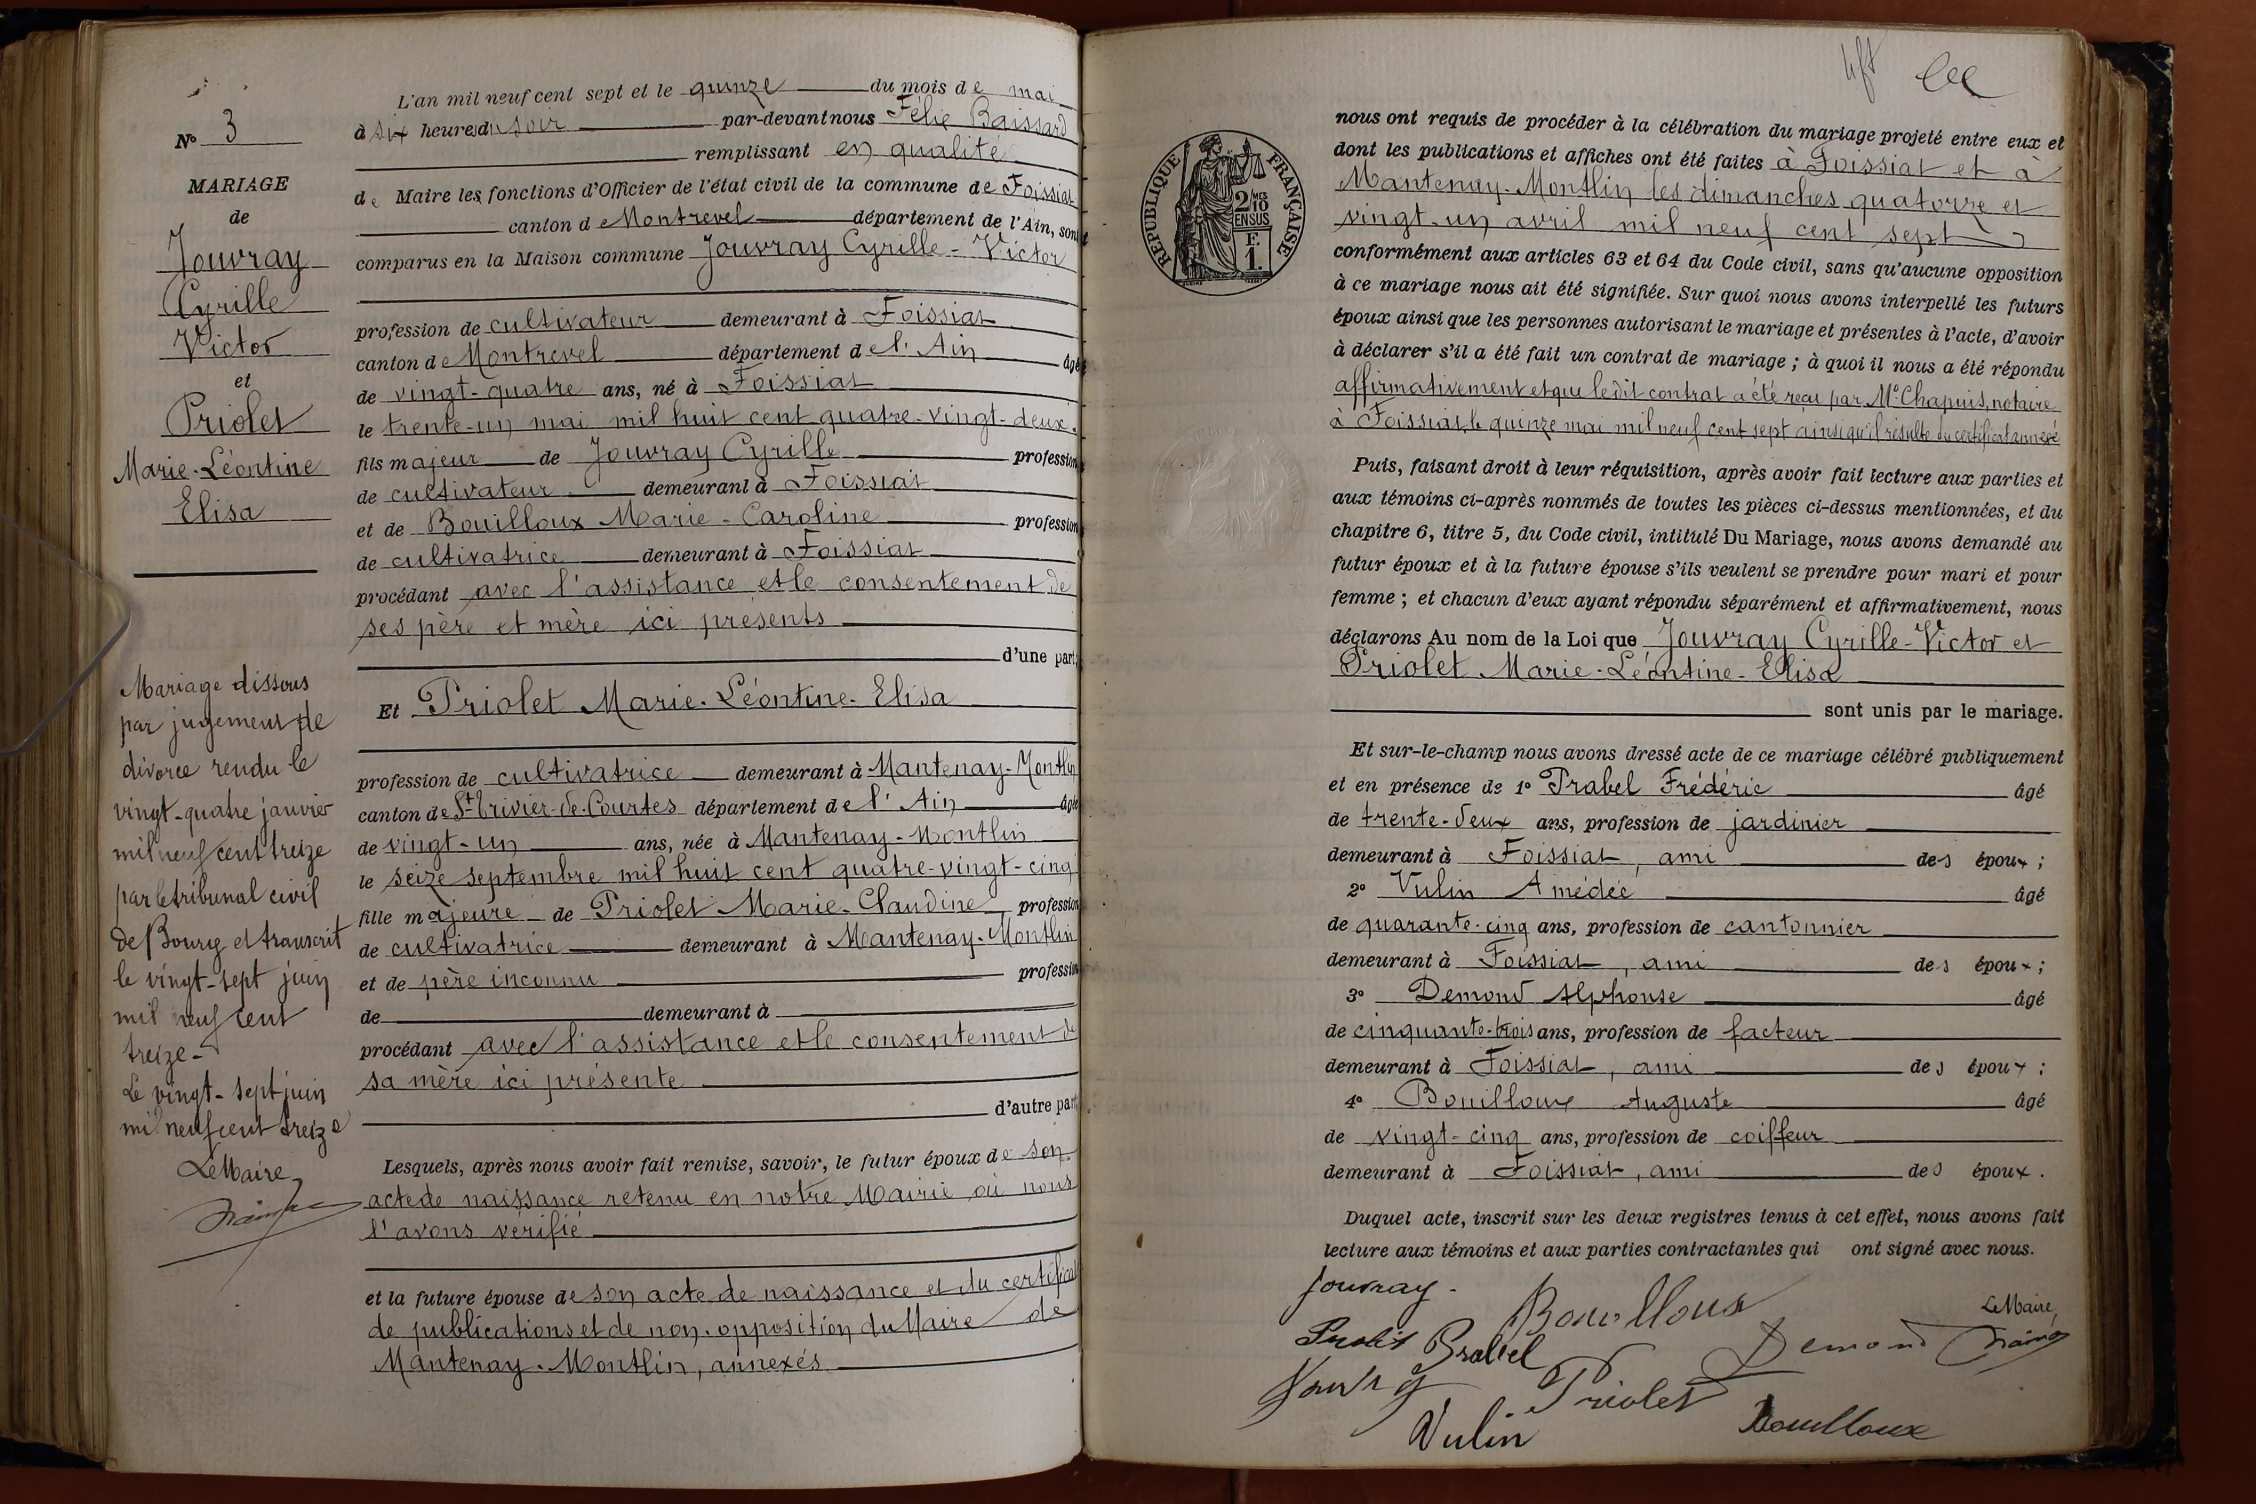 L'an mil neuf cent sept et le quinze du mois de mai
à six heures du soir par-devant nous Félix Baissard
remplissant en qualité
de Maire les fonctions d'Officier de l'état civil de la commune de Foissiat
canton de Montrevel département de l'Ain, sont
comparus en la Maison commune Jouvray Cyrille-Victor
profession de cultivateur demeurant à Foissiat
canton de Montrevel département de l'Ain âgé
de vingt-quatre ans, né à Foissiat
le trente-un mai mil huit cent quatre-vingt-deux.
fils majeur de Jouvray Cyrille profession
de cultivateur demeurant à Foissiat
et de Bouilloux Marie-Caroline profession
de cultivatrice demeurant à Foissiat
procédant avec l'assistance et le consentement de
ses père et mère ici présents
d'une part;
Et Priolet Marie-Léontine-Elisa
profession de cultivatrice demeurant à Mantenay-Montlin
canton de St-Trivier-de-Courtes département de l'Ain âgée
de vingt-un ans, née à Mantenay-Montlin
le seize septembre mil huit cent quatre-vingt-cinq
fille majeure de Priolet Marie-Claudine profession
de cultivatrice demeurant à Mantenay-Montlin
et de père inconnu profession
de demeurant à
procédant avec l'assistance et le consentement de
sa mère ici présente
d'autre part
Lesquels, après nous avoir fait remise, savoir, le futur époux de son
acte de naissance retenu en notre Mairie où nous
l'avons vérifié
et la future épouse de son acte de naissance et du certificat
de publications et de non-opposition du Maire de
Mantenay-Montlin, annexés
No 3
MARIAGE
de
Jouvray
Cyrille
Victor
et
Priolet
Marie-Léontine
Elisa
Mariage dissous
par jugement de
divorce rendu le
vingt-quatre janvier
mil neuf cent treize
par le tribunal civil
de Bourg et transcrit
le vingt-sept juin
mil neuf cent
treize-
Le vingt-sept juin
mil neuf cent treize
Le Maire,
RÉPUBLIQUE FRANÇAISE
2/10 MES
EN SUS
F.
1.
nous ont requis de procéder à la célébration du mariage projeté entre eux et
dont les publications et affiches ont été faites à Foissiat et à
Mantenay-Montlin les dimanches quatorze et
vingt-un avril mil neuf cent sept
conformément aux articles 63 et 64 du Code civil, sans qu'aucune opposition
à ce mariage nous ait été signifiée. Sur quoi nous avons interpellé les futurs
époux ainsi que les personnes autorisant le mariage et présentes à l'acte, d'avoir
à déclarer s'il a été fait un contrat de mariage ; à quoi il nous a été répondu
affirmativement et que le dit contrat a été reçu par Me Chapuis, notaire
à Foissiat, le quinze mai mil neuf cent sept ainsi qu'il résulte du certificat annexé
Puis, faisant droit à leur réquisition, après avoir fait lecture aux parties et
aux témoins ci-après nommés de toutes les pièces ci-dessus mentionnées, et du
chapitre 6, titre 5, du Code civil, intitulé Du Mariage, nous avons demandé au
futur époux et à la future épouse s'ils veulent se prendre pour mari et pour
femme ; et chacun d'eux ayant répondu séparément et affirmativement, nous
déclarons Au nom de la Loi que Jouvray Cyrille-Victor et
Priolet Marie-Léontine-Elisa
sont unis par le mariage.
Et sur-le-champ nous avons dressé acte de ce mariage célébré publiquement
et en présence de 1° Prabel Frédéric âgé
de trente-deux ans, profession de jardinier
demeurant à Foissiat, ami des époux ;
2° Vulin Amédée âgé
de quarante-cinq ans, profession de cantonnier
demeurant à Foissiat, ami des époux ;
3° Demond Alphonse âgé
de cinquante-trois ans, profession de facteur
demeurant à Foissiat, ami des époux ;
4° Bouilloux Auguste âgé
de vingt-cinq ans, profession de coiffeur
demeurant à Foissiat, ami des époux.
Duquel acte, inscrit sur les deux registres tenus à cet effet, nous avons fait
lecture aux témoins et aux parties contractantes qui ont signé avec nous.
Jouvray.
Bouilloux
Le Maire,
Prabel
Demond
Priolet
Vulin
Bouilloux